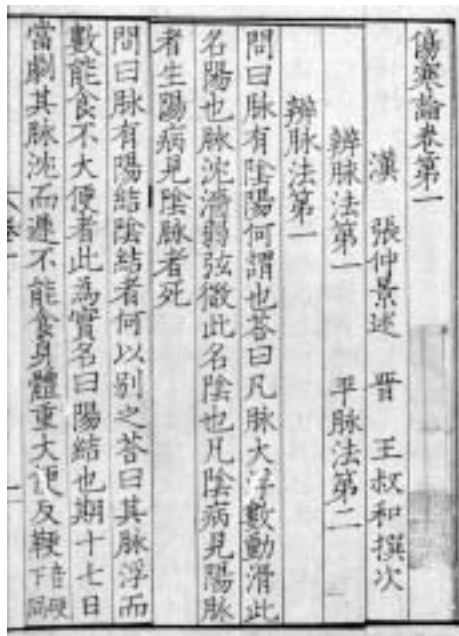 傷寒論卷第一
漢 張仲景述 晋 王叔和撰次
辨脉法第一 平脉法第二
辨脉法第一
問曰脉有陰陽何謂也答曰凡脉大浮數動滑此
名陽也脉沈濇弱弦微此名陰也凡陰病見陽脉
者生陽病見陰脉者死
問曰脉有陽結陰結者何以别之答曰其脉浮而
數能食不大便者此為實名曰陽結也期十七日
當劇其脉沈而遲不能食身體重大便反鞕音硬下同